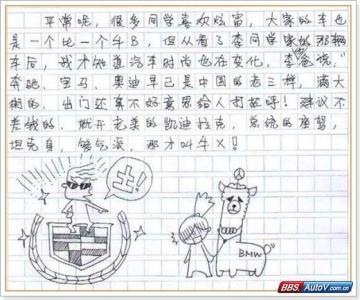 平常呢，很多同学喜欢炫富，大家的车也
是一个比一个牛B，但从看了李同学家的那辆
车后，我才知道汽车时尚也在变化，李爸说："
奔驰、宝马、奥迪早已是中国的老三样，满大
街的，出门还真不好意思给人打招呼！建议不
差钱的，就开老美的凯迪拉克，总统的座驾，
坦克身，够气派，那才叫牛X！
土！
BMW
BBS.AutoV.com.cn